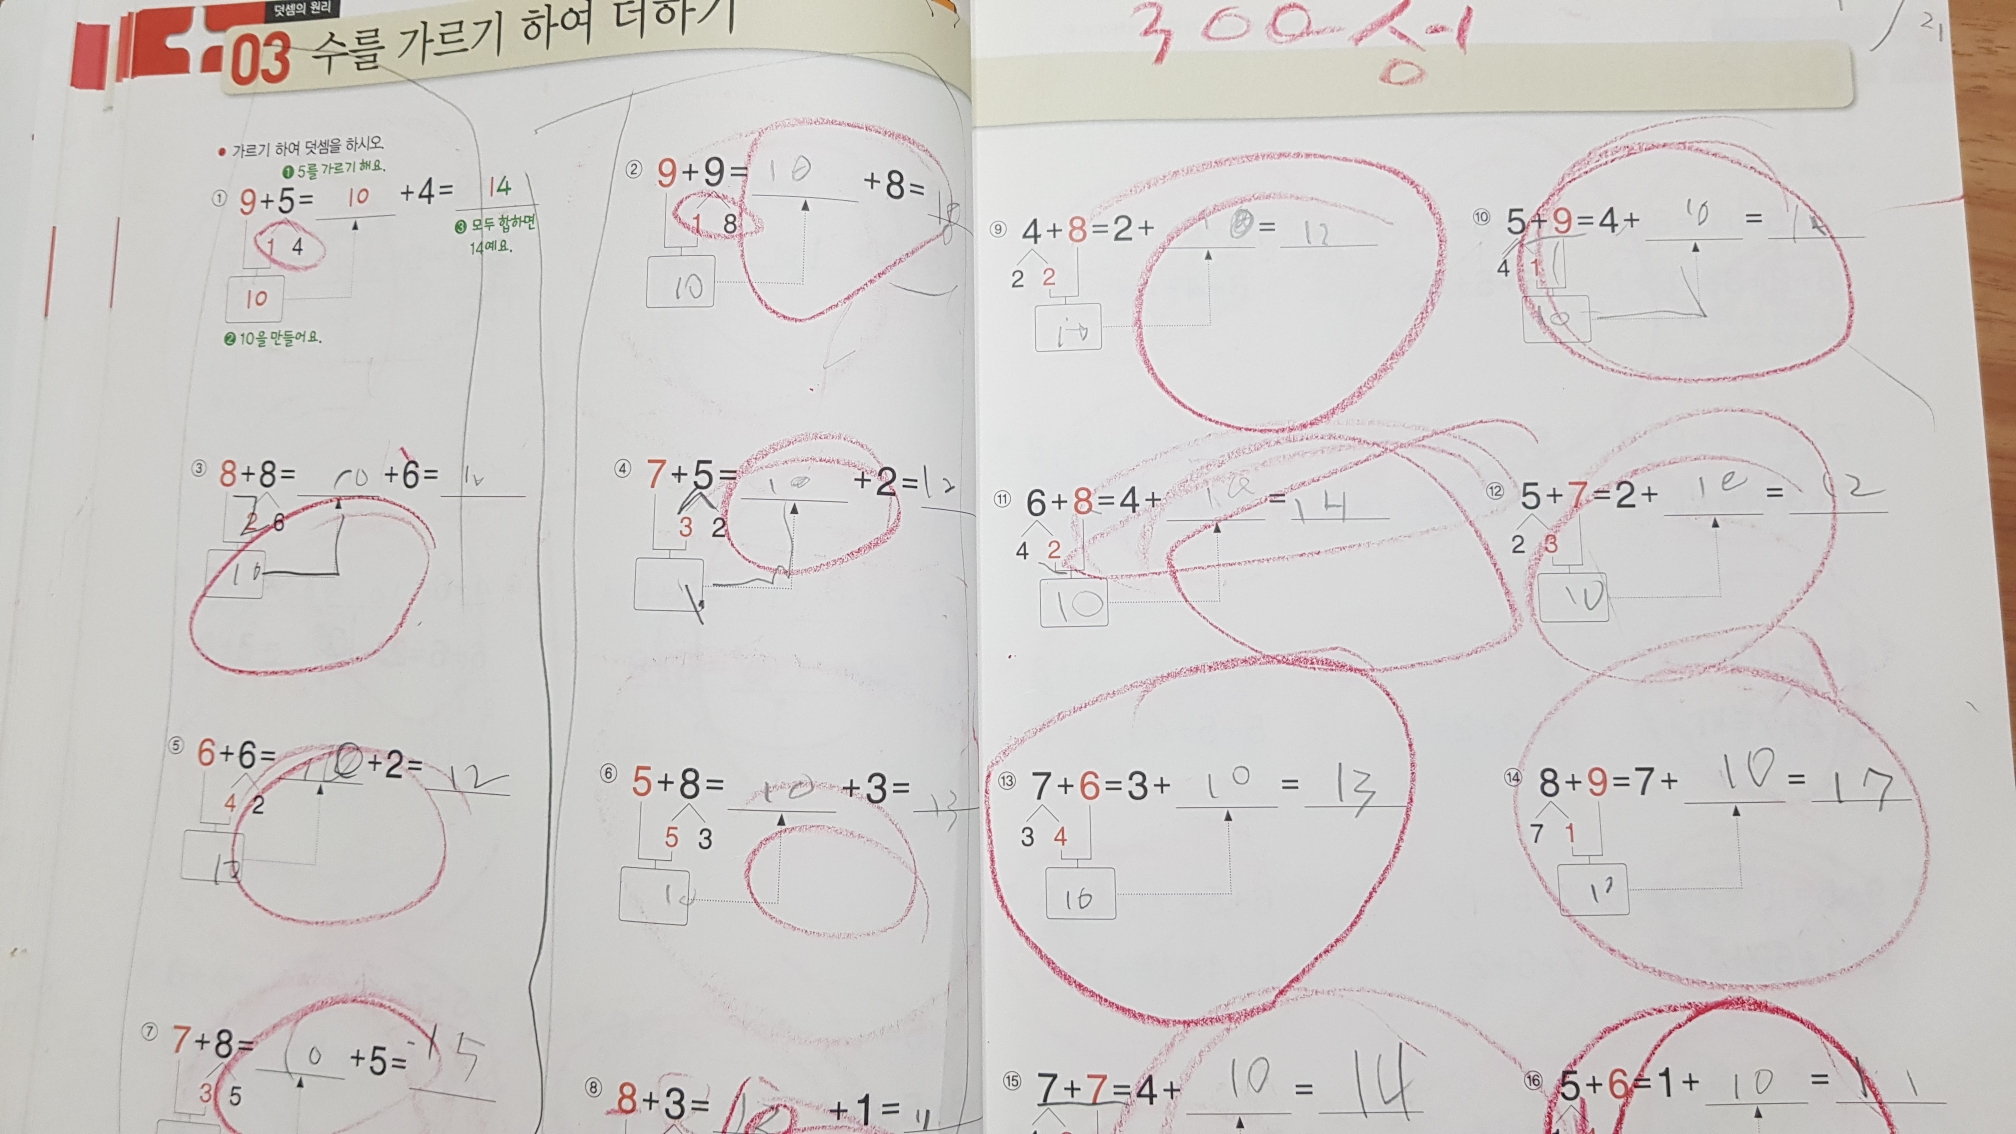 덧셈의 원리
03 수를 가르기 하여 더하기
• 가르기 하여 덧셈을 하시오.
❶ 5를 가르기 해요.
① 9+5= 10 +4= 14
1 4
❸ 모두 합하면
14예요.
10
❷ 10을 만들어요.
② 9+9= 10 +8= 18
1 8
10
③ 8+8= 10 +6=
2 6
10
④ 7+5= 10 +2= 12
3 2
⑤ 6+6= 10 +2= 12
4 2
10
⑥ 5+8= 10 +3= 13
5 3
10
⑦ 7+8= 10 +5= 15
3 5
⑧ 8+3= 10 +1= 11
300점
21
⑨ 4+8=2+ 10 = 12
2 2
10
⑩ 5+9=4+ 10 =
4 1
10
⑪ 6+8=4+ 10 = 14
4 2
10
⑫ 5+7=2+ 10 = 12
2 3
10
⑬ 7+6=3+ 10 = 13
3 4
10
⑭ 8+9=7+ 10 = 17
7 1
10
⑮ 7+7=4+ 10 = 14
⑯ 5+6=1+ 10 = 11